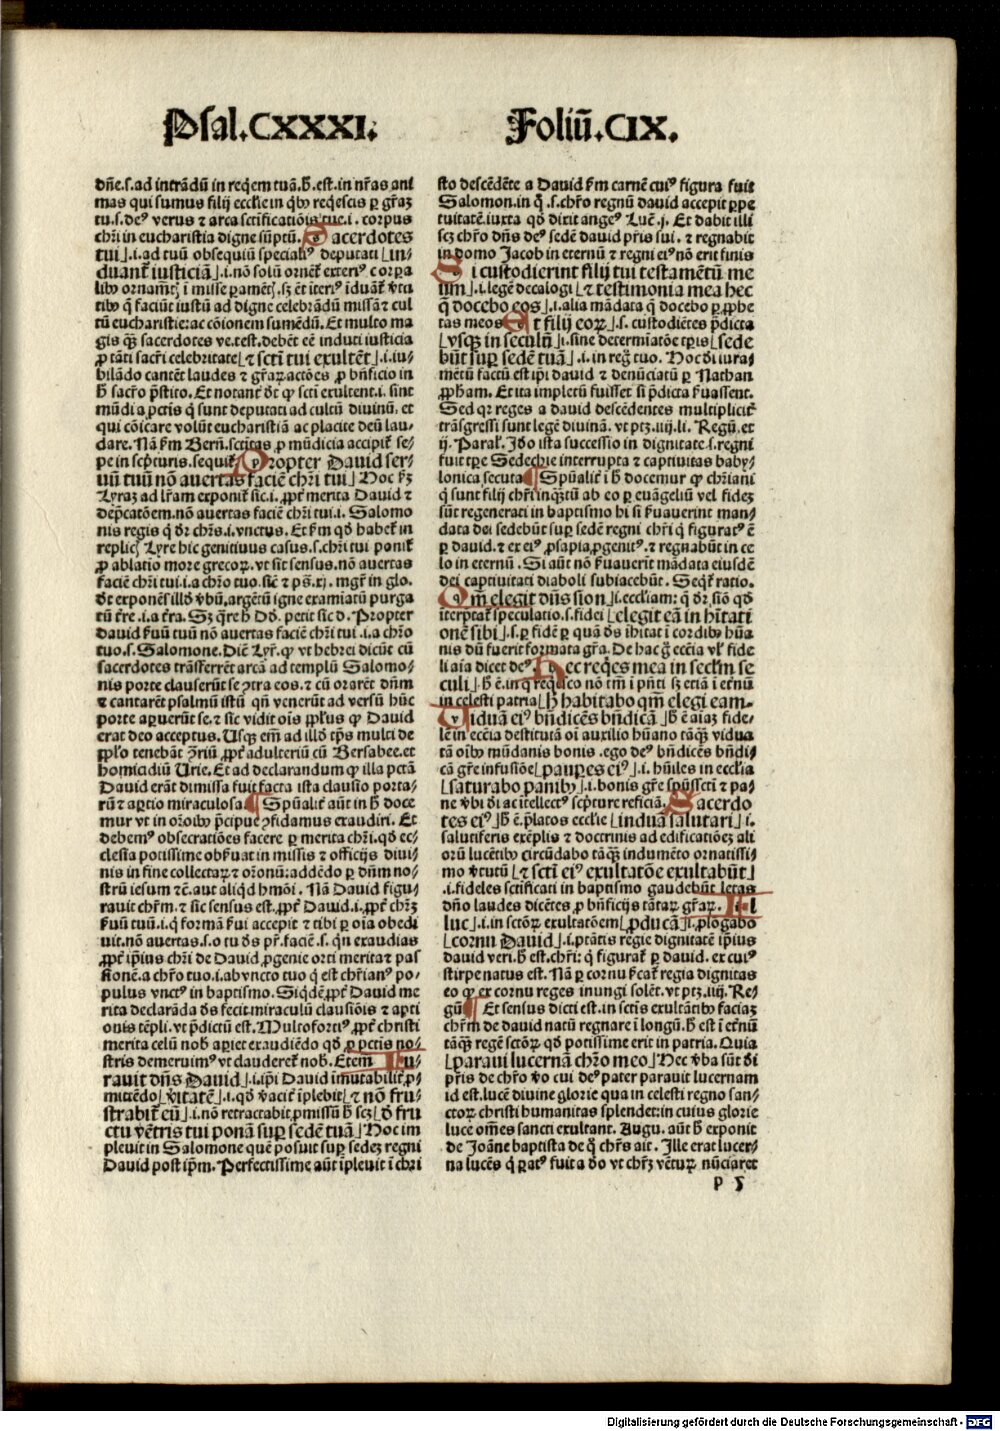 Psal.CXXXI. Foliū.CIX.
dñe.s.ad intrādū in reqẽm tuā.h̄.est.in nr̃as ani
mas qui sumus filij eccl̃ie in qb̾ reqẽscis ꝑ gr̃az
tu.s.deꝰ verus ⁊ arca sctĩficatiõis tue.i. corpus
chr̃i in eucharistia digne sūptū. Sacerdotes
tui ⌋.i.ad tuū obsequiū specialiꝰ deputati ⌊in⸗
duant᷑ iusticiā⌋.i.nō solū ornēt᷑ exteriꝰ corpa
lib̾ ornamt̃ꝭ
tib̾ q̃ faciūt iustū ad digne celebrādū missā ⁊ cul
tū eucharistie:ac cōionem sumēdū. Et multo ma
gis qꝫ sacerdotes ve.test.debēt eē induti iusticia
ꝓ tāti sacr̃i celebritate⌊⁊ sctĩ tui exultēt⌋.i.iu⸗
bilādo cantēt laudes ⁊ gr̃aꝝ actōes ꝓ bñficio in
h̄ sacro p̃stito. Et notant᷑ dt̃ ꝙ sctĩ exultent.i. sint
mūdi a pctĩs q̃ sunt deputati ad cultū diuinū, et
qui cōicare volūt eucharistiā ac placite deū lau⸗
dare. Nā ẜm Bern̄.sctĩtas ꝓ mūdicia accipit᷑ se⸗
pe in scp̃turis.sequit᷑. Propter Dauid ser⸗
uū tuū nō auertas faciē chr̃i tui⌋ Hoc ẜz
Lyraz ad lr̃am exponit᷑ sic.i. ꝓpt̃ merita Dauid ⁊
dep̃catōem.nō auertas faciē chr̃i tui.i. Salomo
nis regis q̃ dr̃ chr̃s.i.vnctus. Et ẜm qd̾ habet᷑ in
replicꝭ Lyre hic genitiuus casus.s.chr̃i tui ponit᷑
ꝓ ablatio more grecoꝝ. vt sit sensus. nō auertas
faciē chr̃i tui.i.a chr̃o tuo.sic̃ ⁊ ps̄.xj. mgr̃ in glo.
dt̃ exponēs illd̾ vb̾ū.argētū igne examiatū purga
tū tr̃e.i.a tr̃a. Sꝫ qr̃e h̄ Dd̾. petit sic d. Propter
Dauid ẜuū tuū nō auertas faciē chr̃i tui .i.a chr̃o
tuo.s. Salomone. Diẽ Lyr̃. ꝙ vt hebrei dicūt cū
sacerdotes trāsferrēt arcā ad templū Salomo⸗
nis porte clauserūt se ꝯtra eos. ⁊ cū orarēt dñm
⁊ cantarēt psalmū istū qñ venerūt ad versū hūc
porte aꝑuerūt se. ⁊ sic vidit oīs ppl̃us ꝙ Dauid
erat deo acceptus. Usqꝫ em̃ ad illd̾ tp̃s multi de
pplõ tenebāt ꝯriū, ꝓpt̃ adulteriū cū Bersabee.et
homicidiū Urie. Et ad declarandum ꝙ illa pctā
Dauid erāt dimissa fuit facta ista clausio porta⸗
rū ⁊ aꝑtio miraculosa ¶ Spūalit᷑ aūt in h̄ doce
mur vt in or̃oib̾ p̃cipue ꝯfidamus exaudiri. Et
debemꝰ obsecratiões facere ꝑ merita chr̃i.qd̾ ec⸗
clesia potissime obẜuat in missis ⁊ officijs diui⸗
nis in fine collectaꝝ ⁊ or̃onū: addēdo ꝑ dñm no⸗
strū iesum ⁊c̃. aut aliqd̾ hm̃oi. Nā Dauid figu⸗
rauit chr̃m. ⁊ sic sensus est. ꝓpt̃ Dauid.i.ꝓpt̃ chr̃z
ẜuū tuū.i.q̃ formā ẜui accepit ⁊ tibi ꝑ oīa obedi
uit.nō auertas.s.o tu ds̄ pr̃.faciē.s. qñ exaudias
ꝓpt̃ ip̄ius chr̃i de Dauid ꝓgenie orti merita ⁊ pas
siōnē.a chr̃o tuo.i.ab vncto tuo q̃ est chr̃ianꝰ po⸗
pulus vnctꝰ in baptismo. Siqd̾ē ꝓpt̃ Dauid me
rita declarāda ds̄ fecit miraculū clausiōis ⁊ apti
onis tēpli. vt p̃dictū est. Multofortiꝰ ꝓpt̃ christi
merita celū nob̾ aꝑiet exaudiēdo qd̾ ꝓ pctĩs no⸗
stris demeruimꝰ vt clauderet᷑ nob̾. Etem̄ Iu⸗
rauit dñs Dauid⌋.i.ip̄i Dauid īmutabilit᷑ ꝓ⸗
mittēdo⌊vītatē⌋.i.qd̾ vacit᷑ īplebit⌊⁊ nō fru⸗
strabit᷑ eū⌋.i.nō retractabit ꝓmissū h̄ scꝫ⌊d̾ fru
ctu vētris tui ponā suꝑ sedē tuā⌋ Hoc im
pleuit in Salomone quē posuit suꝑ sedez regni
Dauid post ip̄m. Perfectissime aūt īpleuit ī chr̃i
sto descēdēte a Dauid ẜm carnē cuiꝰ figura fuit
Salomon.in q̃ .s.chr̃o regnū dauid accepit ꝑpe
tuitatē.iuxta qd̾ dixit angeꝰ Luc̃.j. Et dabit illi
scꝫ chr̃o dñs deꝰ sedē dauid pr̃is sui. ⁊ regnabit
in domo Jacob in eternū ⁊ regni eiꝰ nō erit finis
Si custodierint filij tui testamētū me
um⌋.i.legē decalogi ⌊⁊ testimonia mea hec
q̃ docebo eos⌋.i.alia mādata q̃ docebo ꝑ ꝓphe
tas meos Et filij eoꝝ⌋.s. custodiētes p̃dicta
⌊vsqꝫ in seculū⌋.i.sine determiatōe tp̃is⌊sede
būt suꝑ sedē tuā⌋.i.in reg̃ tuo. Hoc di iura⸗
mētū factū est ip̄i dauid ⁊ denūciatū ꝑ Nathan
ꝓpham. Et ita impletū fuisset si p̃dicta ẜuassent.
Sed qꝛ reges a dauid descēdentes multiplicit᷑
trāsgressi sunt legē diuinā. vt ptꝫ.iiij.li. Regū. et
ij. Paral᷑. Jdo ista successio in dignitate.s.regni
fuit tp̃e Sedechie interrupta ⁊ captiuitas baby⸗
lonica secuta ¶ Spūalit᷑ ī h̄ docemur ꝙ chr̃iani
q̃ sunt filij chr̃i inqꝫtū ab eo ꝑ euāgeliū vel fidez
sūt regenerati in baptismo hi si ẜuauerint man⸗
data dei sedebūt suꝑ sedē regni chr̃i q̃ figuratꝰ ē
ꝑ dauid.⁊ ex eiꝰ ꝓsapia ꝓgenitꝰ.⁊ regnabūt in ce
lo in eternū. Si aūt nō ẜuauerīt mādata eiusdē
dei captiuitati diaboli subiacebūt. Seqt᷑ ratio.
Qm̄ elegit dñs sion⌋.i.eccl̃iam: q̃ dr̃ siō qd̾
īterp̃tat᷑ speculatio.s.fidei⌊elegit eā in hītati
onē sibi⌋.s.ꝑ fidē ꝑ quā ds̄ īhitat ī cordib̾ hūa
nis dū fuerit formata gr̃a. De hac g̃ ecc̄ia vl᷑ fide
li aīa dicet deꝰ. Hec reqẽs mea in seclm̃ se
culi⌋.h̄ ē.in q̃ reqẽsco nō tm̄ ī p̃nti sꝫ etiā ī et̃nū
in celesti patria⌊h̄ habitabo qm̃ elegi eam⸗
Uiduā eiꝰ bñdicēs bñdicā⌋h̄ ē aīaz fide⸗
lē in ecc̄ia destitutā oī auxilio hūano tāqꝫ vidua
tā oīb̾ mūdanis bonis .ego deꝰ bñdicēs bñdi⸗
cā gr̃e infusiōe⌊pauꝑes eiꝰ⌋.i. hūiles in eccl̃ia
⌊saturabo panib̾⌋.i.bonis gr̃e spūssctĩ ⁊ pa⸗
ne vbi di ac itellectꝰ scp̃ture reficiā. Sacerdo
tes eiꝰ⌋h̄ ē.p̄latos eccl̃ie⌊induā salutari⌋.i.
salutiferis exēplis ⁊ doctrinis ad edificatiōez ali
orū lucētib̾ circūdabo tāqꝫ indumēto ornatissi⸗
mo v̾tutū⌊⁊ sctĩ eiꝰ exultatōe exultabūt⌋
.i.fideles sctĩficati in baptismo gaudebūt letas
dño laudes dicētes ꝓ bñficijs tātaꝝ gr̃aꝝ. Il
luc⌋.i.in sctōꝝ exultatōem⌊ꝓducā⌋.i.ꝓlōgabo
⌊cornu Dauid⌋.i.ptātis regie dignitatē ip̄ius
dauid veri.h̄ est.chr̃i: q̃ figurat᷑ ꝑ dauid.ex cuiꝰ
stirpe natus est. Nā ꝑ cornu ẜcat᷑ regia dignitas
eo ꝙ ex cornu reges inungi solēt.vt ptꝫ.iiij. Re⸗
gū ¶ Et sensus dicti est.in sctĩs exultātib̾ faciaz
chr̃m de dauid natū regnare ī longū.h̄ est ī et̃nū
tāqꝫ regē sctōꝝ qd̾ potissime erit in patria. Quia
⌊paraui lucernā chr̃o meo⌋Hec v̾ba sūt di
pr̃is de chr̃o v̾o cui deꝰ pater parauit lucernam
id est.lucē diuine glorie qua in celesti regno san⸗
ctoꝝ christi humanitas splendet:in cuius glorie
luce om̄es sancti exultant. Augu. aūt h̄ exponit
de Joāne baptista de q̃ chr̃s ait. Jlle erat lucer⸗
na lucēs q̃ ꝑatꝰ fuit a d̾o vt chr̃z vētuꝝ nūciaret
p 5
Digitalisierung gefördert durch die Deutsche Forschungsgemeinschaft - DFG